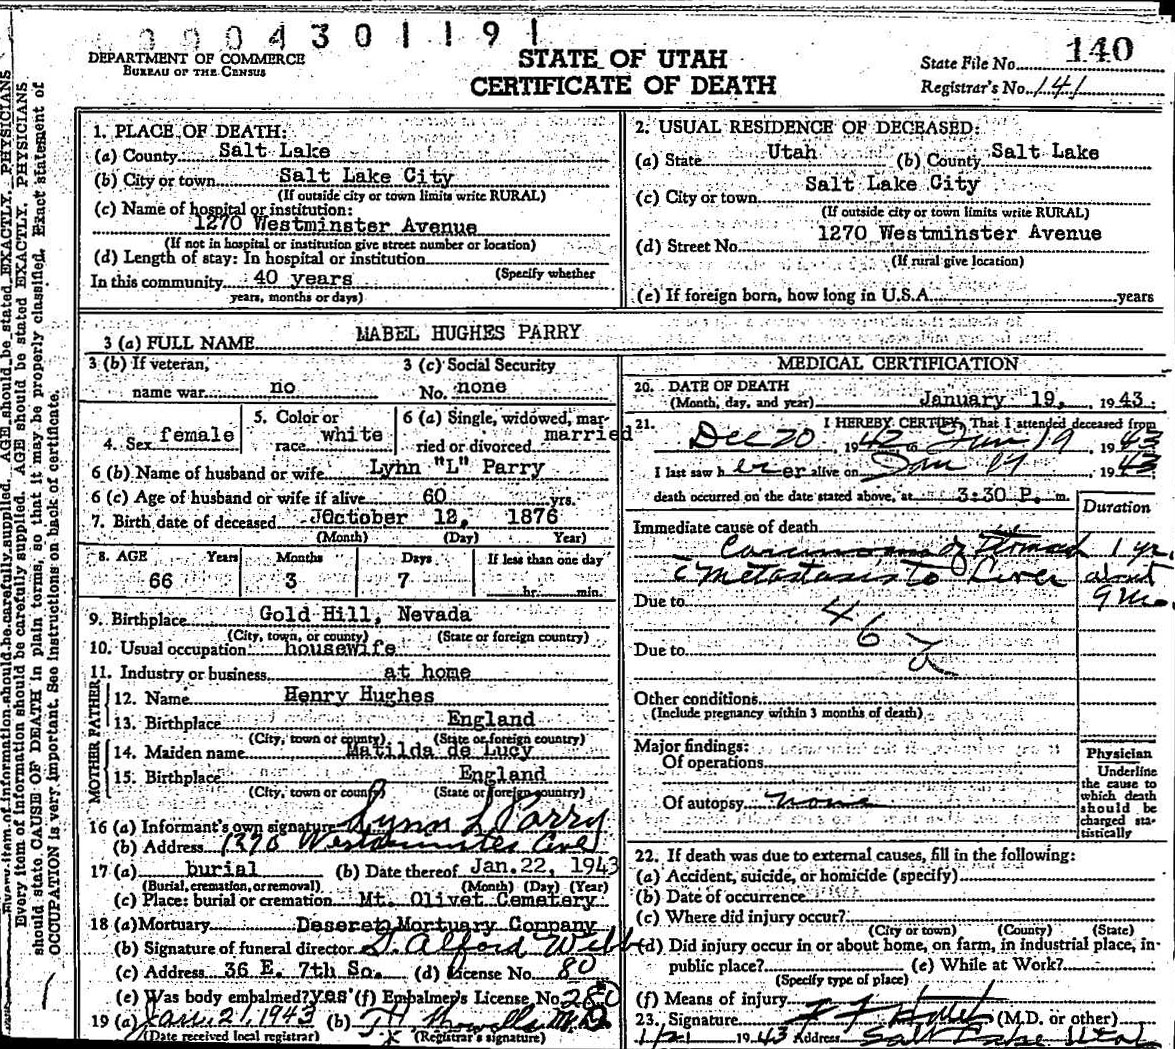 0004301191
DEPARTMENT OF COMMERCE
BUREAU OF THE CENSUS
STATE OF UTAH
CERTIFICATE OF DEATH
State File No. 140
Registrar's No. 141
1. PLACE OF DEATH:
(a) County Salt Lake
(b) City or town Salt Lake City
(If outside city or town limits write RURAL)
(c) Name of hospital or institution:
1270 Westminster Avenue
(If not in hospital or institution give street number or location)
(d) Length of stay: In hospital or institution
(Specify whether
In this community 40 years
years, months or days)
2. USUAL RESIDENCE OF DECEASED:
(a) State Utah (b) County Salt Lake
(c) City or town Salt Lake City
(If outside city or town limits write RURAL)
(d) Street No. 1270 Westminster Avenue
(If rural give location)
(e) If foreign born, how long in U.S.A. years
3 (a) FULL NAME MABEL HUGHES PARRY
3 (b) If veteran,
name war no
3 (c) Social Security
No. none
4. Sex female
5. Color or
race white
6 (a) Single, widowed, mar-
ried or divorced married
6 (b) Name of husband or wife Lynn "L" Parry
6 (c) Age of husband or wife if alive 60 yrs.
7. Birth date of deceased October 12, 1876
(Month) (Day) Year)
8. AGE Years Months Days If less than one day
66 3 7 hr. min.
9. Birthplace Gold Hill, Nevada
(City, town, or county) (State or foreign country)
10. Usual occupation housewife
11. Industry or business at home
FATHER
12. Name Henry Hughes
13. Birthplace England
(City, town or county) (State or foreign country)
MOTHER
14. Maiden name Matilda de Lucy
15. Birthplace England
(City, town or county) (State or foreign country)
16 (a) Informant's own signature Lynn L Parry
(b) Address 1270 Westminster Ave
17 (a) burial (b) Date thereof Jan. 22, 1943
(Burial, cremation, or removal) (Month) (Day) (Year)
(c) Place: burial or cremation Mt. Olivet Cemetery
18 (a) Mortuary Deseret Mortuary Company
(b) Signature of funeral director Alford
(c) Address 36 E. 7th So. (d) License No. 80
(e) Was body embalmed? yes (f) Embalmer's License No. 280
19 (a) Jan. 21, 1943 (b) Howells M.D.
(Date received local registrar) (Registrar's signature)
MEDICAL CERTIFICATION
20. DATE OF DEATH
(Month, day, and year) January 19, 1943
21. I HEREBY CERTIFY, That I attended deceased from
Dec 20, 1942 to Jan 19, 1943
I last saw her er alive on Jan 19 1943
death occurred on the date stated above, at 3:30 P. m.
Duration
Immediate cause of death
Carcinoma of Stomach 1 yr.
c Metastasis to Liver about
9 mo.
Due to
46
Due to
Other conditions
(Include pregnancy within 3 months of death)
Major findings:
Of operations
Of autopsy none
Physician
Underline
the cause to
which death
should be
charged sta-
tistically
22. If death was due to external causes, fill in the following:
(a) Accident, suicide, or homicide (specify)
(b) Date of occurrence
(c) Where did injury occur?
(City or town) (County) (State)
(d) Did injury occur in or about home, on farm, in industrial place, in
public place? (e) While at Work?
(Specify type of place)
(f) Means of injury
23. Signature (M.D. or other)
1/21 1943 Address Salt Lake Utah
Every item of information should be carefully supplied. AGE should be stated EXACTLY. PHYSICIANS
Every item of information should be carefully supplied. AGE should be stated EXACTLY. PHYSICIANS
should state CAUSE OF DEATH in plain terms, so that it may be properly classified. Exact statement of
OCCUPATION is very important. See instructions on back of certificate.